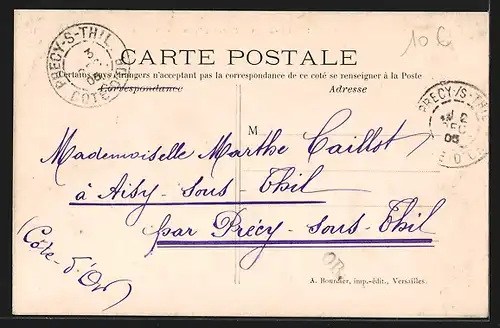 10 C
PRECY-S-THIL
COTE D'OR
CARTE POSTALE
Certains pays étrangers n'acceptant pas la correspondance de ce coté se renseigner à la Poste
Correspondance
Adresse
PRECY-S-THIL
2
DEC
05
M
Mademoiselle Marthe Caillot
à Aisy-sous-Thil
par Précy-sous-Thil
(Côte-d'Or)
OR
A. Bourdier, imp.-édit., Versailles.